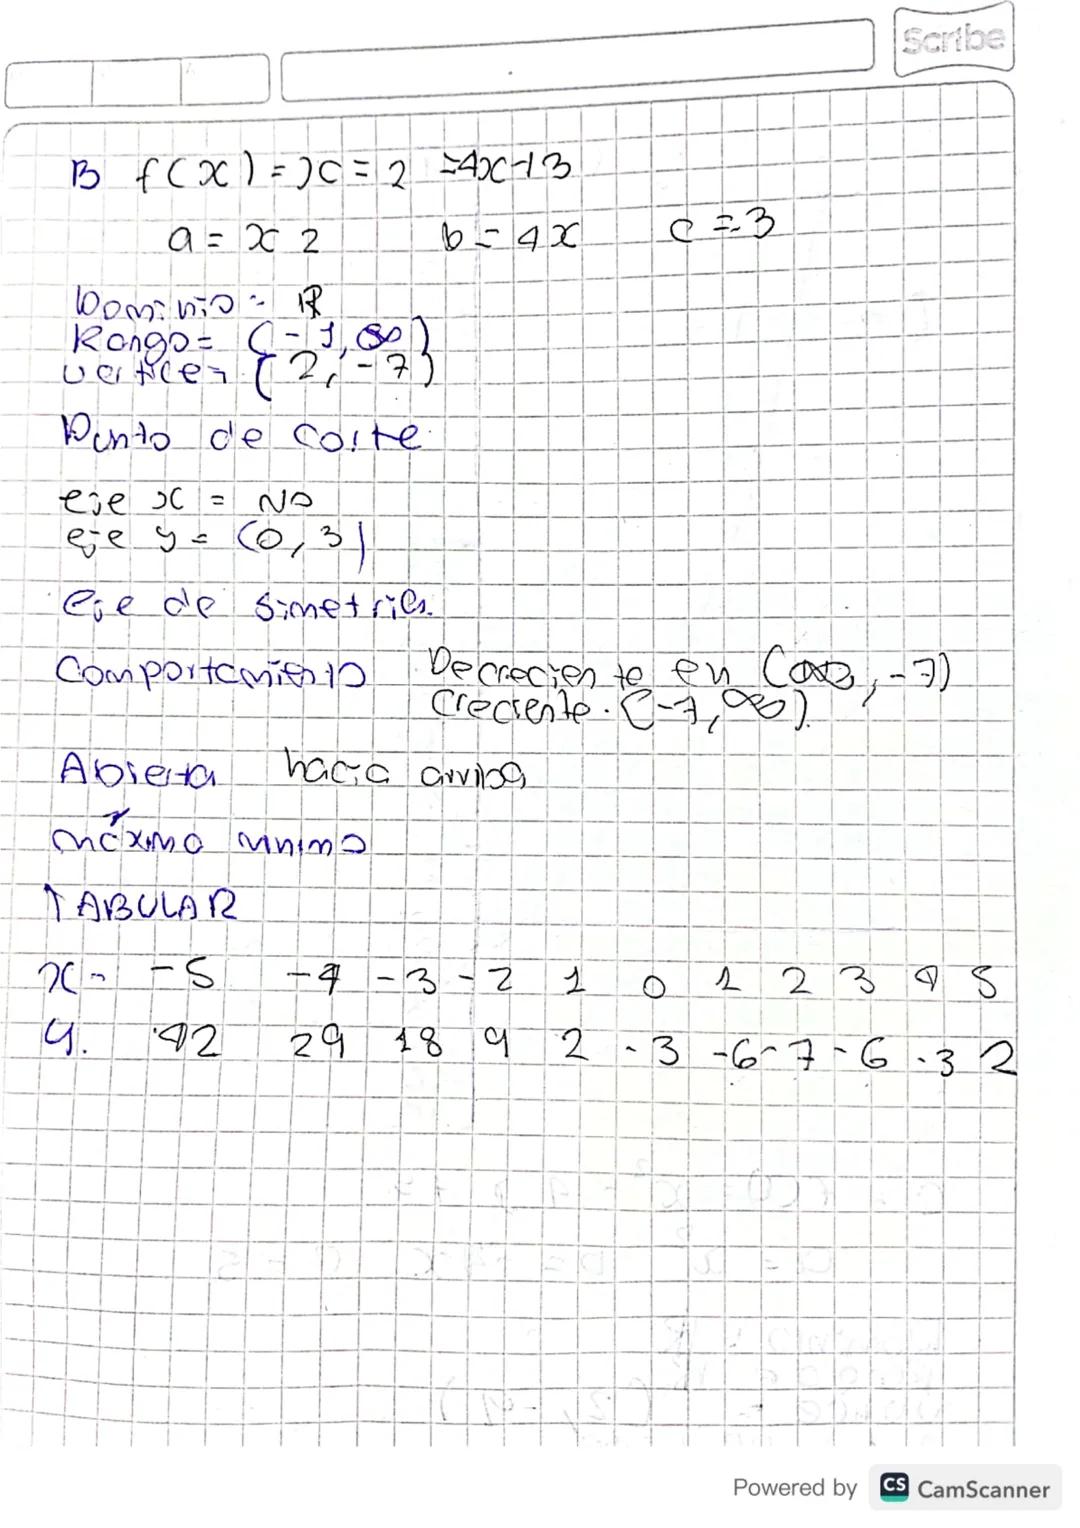 Scribe
B f(x) = x = 2 = 4x+3
a = x 2 b = 4x c = 3
Dominio = R
Rango = (-1, ∞)
Vertice = (2, -7)
Punto de corte
eje x = No
eje y = (0, 3)
Eje de simetria
Comportamiento Decrecien te en (∞, -7)
Creciente. (-7, ∞)
Abierta hacia arriba
máximo minimo
TABULAR
x = -5 -4 -3 -2 1 0 1 2 3 4 5
y. 42 29 18 9 2 -3 -6 -7 -6 -3 2
Powered by CS CamScanner